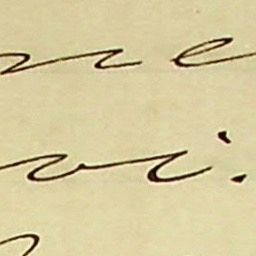 ne
vi.